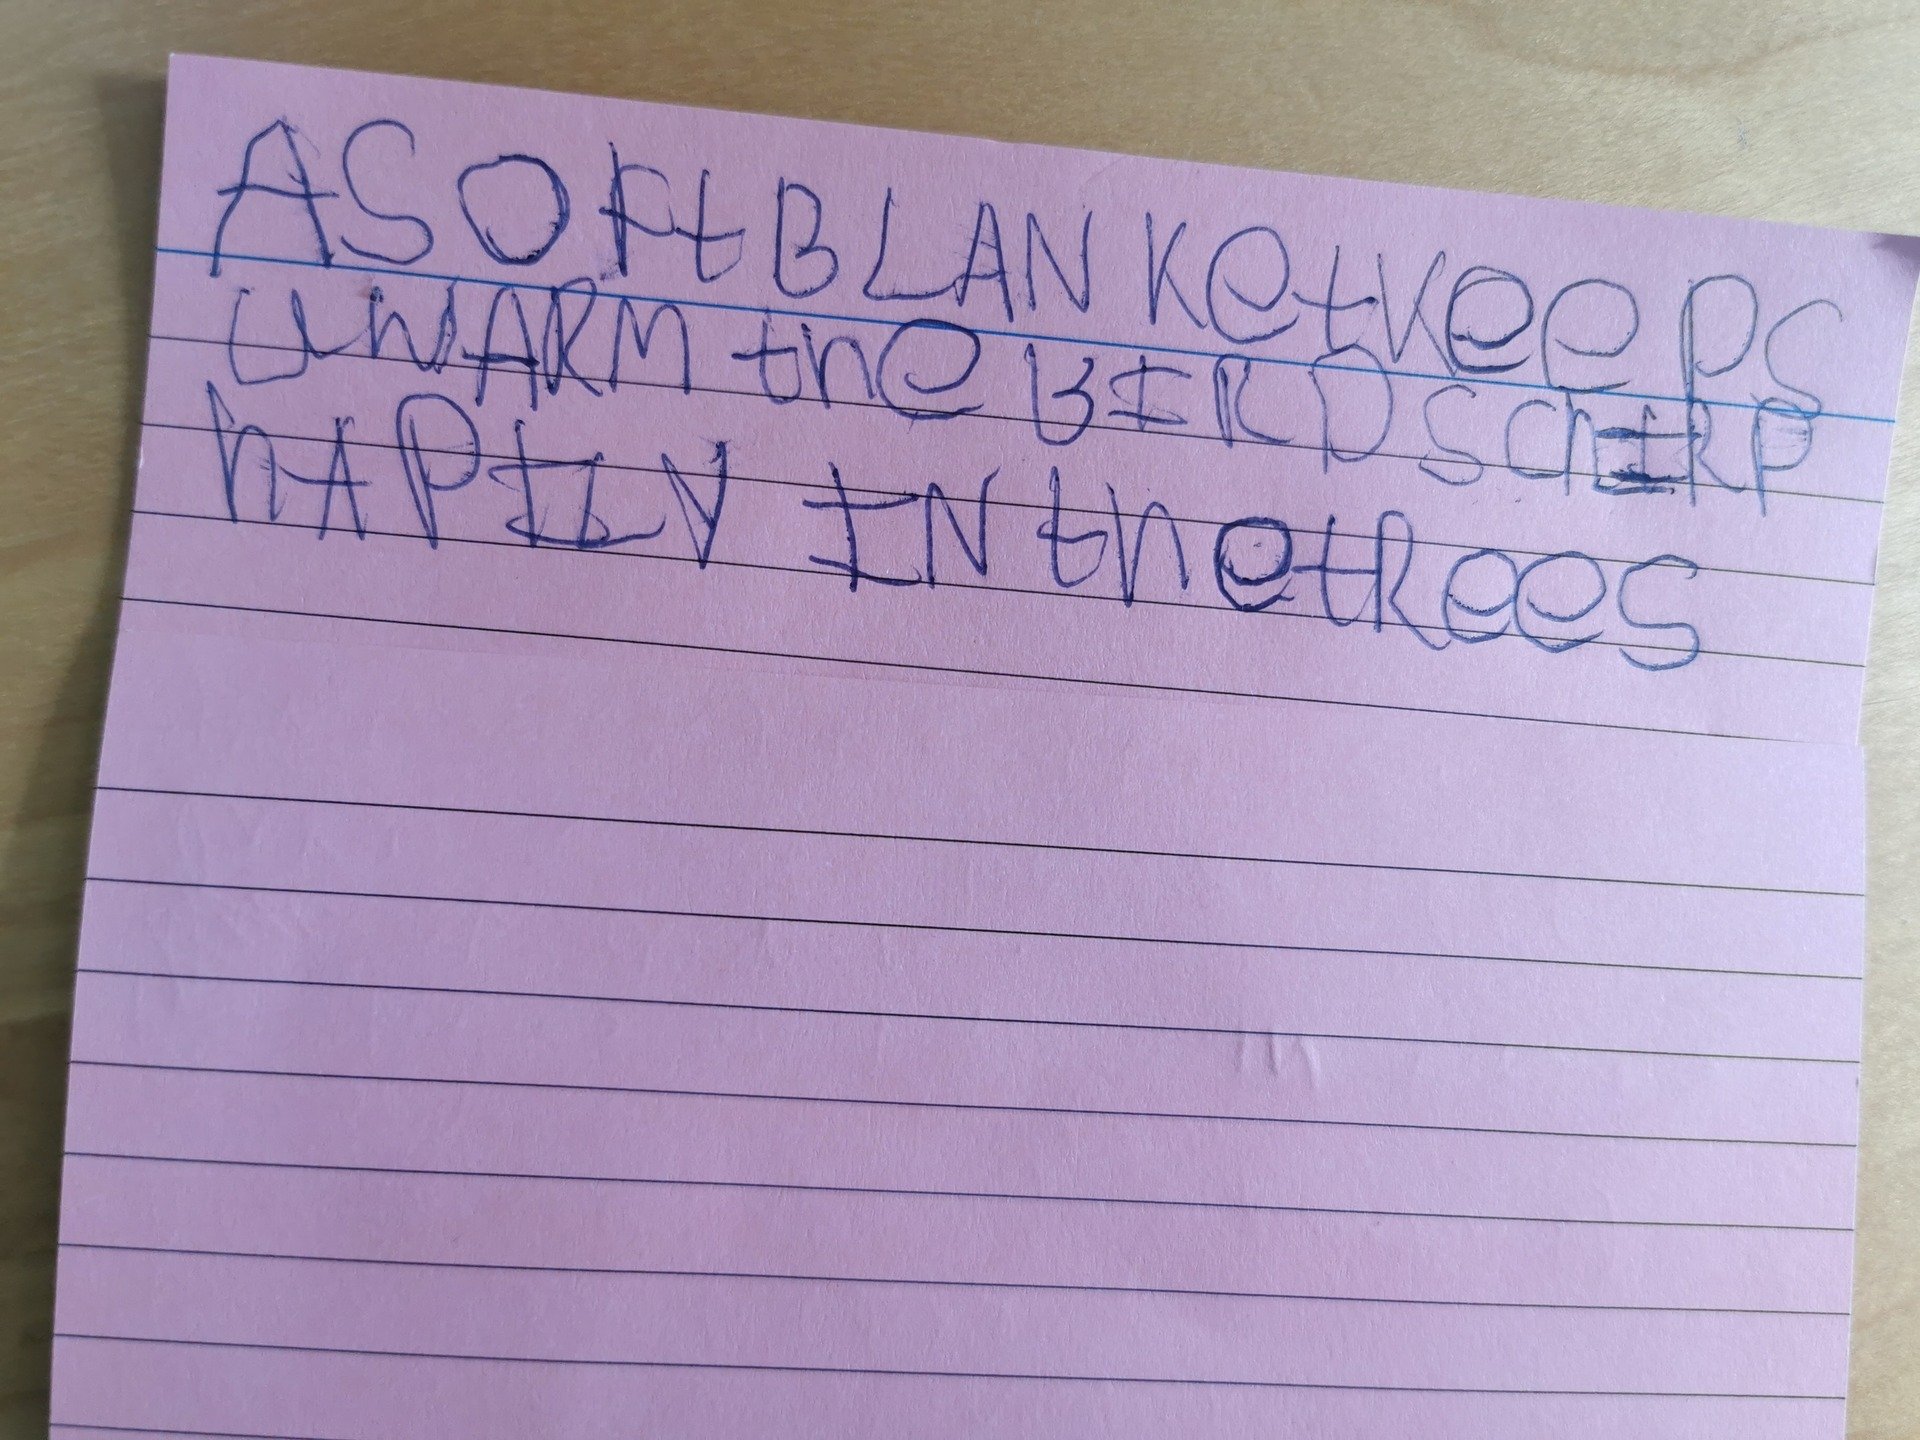 A SOFt BLANKet KeePS
U WARM the BIRDS ChIRP
hAPILY IN the tRees